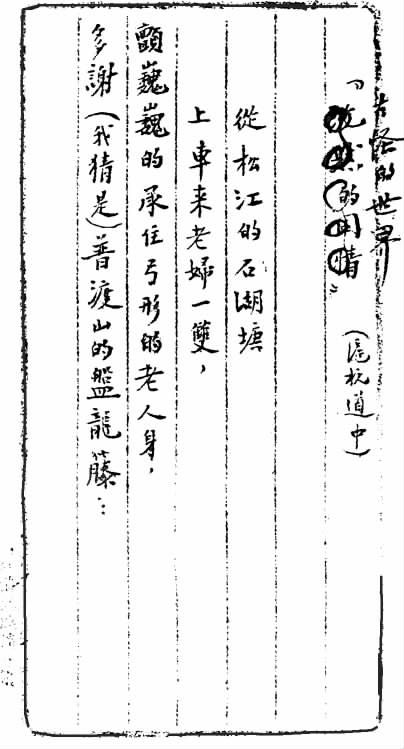 古怪的世界
的同情』
(滬杭道中)
從松江的石湖塘
上車来老婦一雙，
顫巍巍的承住弓形的老人身，
多謝(我猜是)普渡山的盤龍藤：